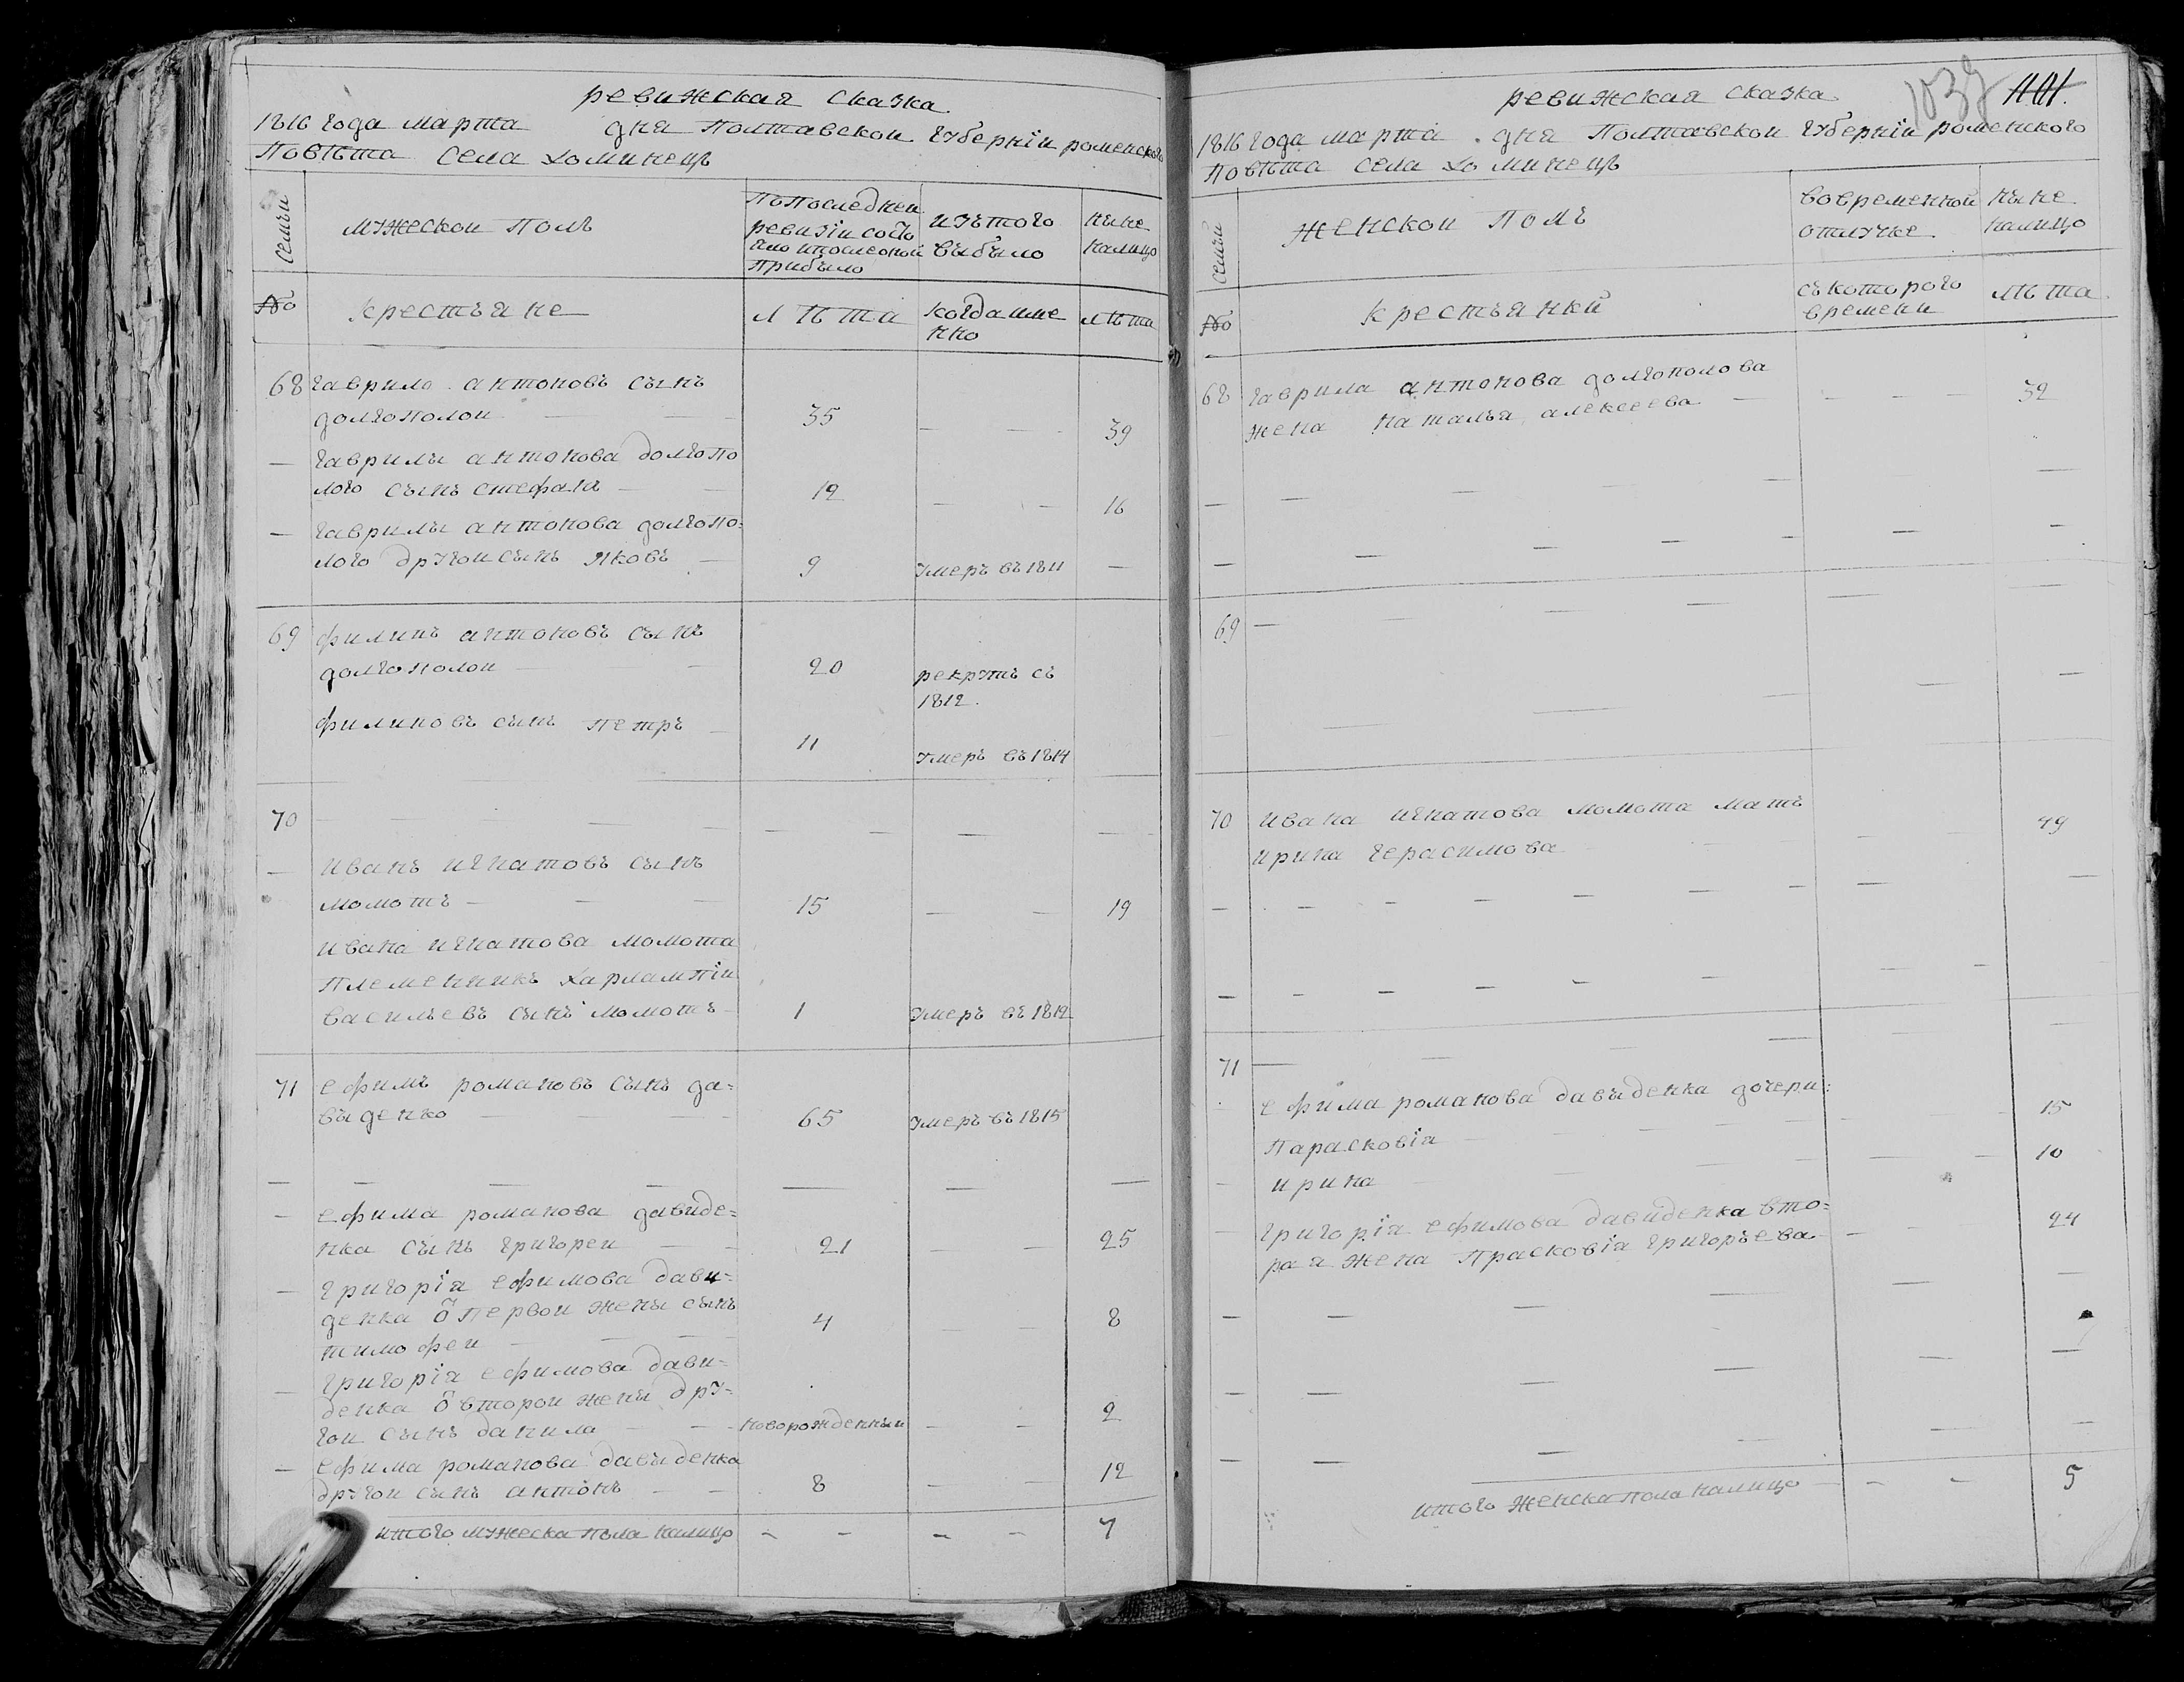 ревижская сказка
1816 года марта дня Полтавской губернїи роменского
Повѣта села хоминецъ
семьи
мужескои полъ
По последней
ревизїи состо
яло и после оной
прибыло
изъ того
выбыло
ныне
налицо
№
крестьяне
лѣта
когда име
нно
лѣта
68 гаврило антоновъ сынъ
долгополои 35 39
гаврилы антонова долгопо
лого сынъ стефанъ 12 16
гаврилы антонова долгопо=
лого другои сынъ яковъ 9 умеръ въ 1811
69 филипъ антоновъ сынъ
долгополои 20 рекрутъ съ
1812.
филиповъ сынъ петръ 11 умеръ въ 1814
70
иванъ игнатовъ сынъ
момотъ 15 19
ивана игнатова момота
племенникъ харлампїи
васильевъ сынъ момотъ 1 умеръ въ 1812
71 ефимъ романовъ сынъ да=
выденко 65 умеръ въ 1815
ефима романова давиде=
нка сынъ григореи 21 25
григорїя ефимова дави=
денка ѿ первои жены сынъ
тимофеи 4 8
григорїя ефимова дави=
денка ѿ второи жены дру=
гои сынъ данила новорожденныи 2
ефима романова давыденка
другои сынъ антонъ 8 12
итого мужеска пола налицо 7
1039 1101.
ревижская сказка
1816 года марта дня Полтавской губернїи роменского
повѣта села хоминецъ
семьи
женскои полъ
вовременной
отлучке
ныне
налицо
№
крестьянки
съ которого
времени
лѣта
68 гаврила антонова долгополова
жена наталья алексеева 32
69
70 ивана игнатова момота мать
ирина герасимова 49
71
ефима романова давыденка дочери:
Парасковїя 15
ирина 10
григорїя ефимова давиденка вто=
рая жена Прасковїя григорьева 24
итого женска пола налицо 5